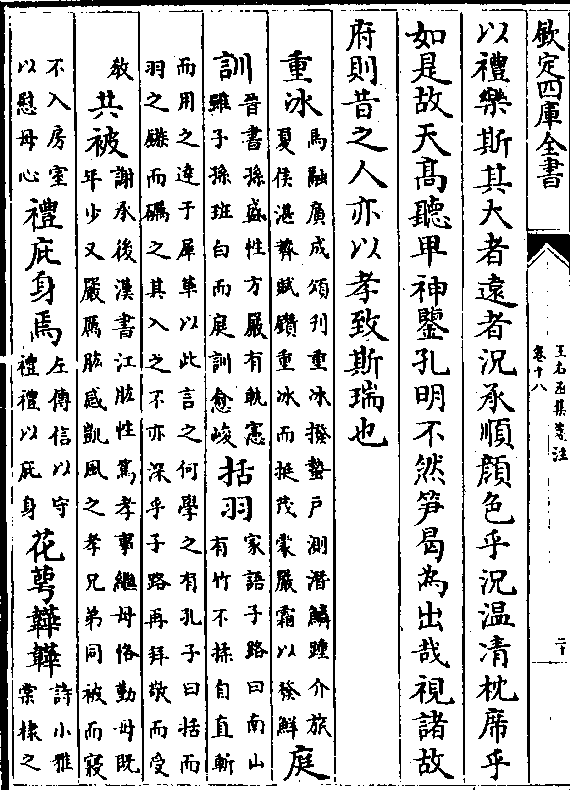 欽定四庫全書
王右丞集箋注
卷十八
二十
以禮樂斯其大者遠者況承順顔色乎況温凊枕席乎
如是故天髙聽卑神鑒孔明不然笋曷為出哉視諸故
府則昔之人亦以孝致斯瑞也
重冰馬融廣成頌刋重冰撥蟄户測潛鱗踵介旅
夏侯湛㢡賦鑽重冰而挺茂蒙嚴霜以發鮮庭
訓晉書孫盛性方嚴有軌憲
雖子孫班白而庭訓愈峻括羽家語子路曰南山
有竹不揉自直斬
而用之達于犀革以此言之何學之有孔子曰括而
羽之鏃而礪之其入之不亦深乎子路再拜敬而受
教共被謝承後漢書江肱性篤孝事繼母恪勤母既
年少又嚴厲肱感凱風之孝兄弟同被而寢
不入房室
以慰母心禮庇身焉左傳信以守
禮禮以庇身花萼韡韡詩小雅
棠棣之